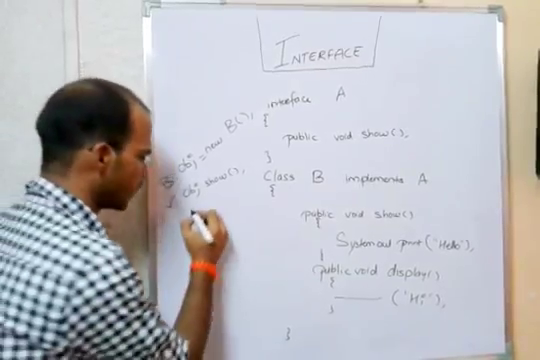 INTERFACE
interface A
{
public void show();
}
Class B implements A
{
public void show()
{
System.out.print("Hello");
}
public void display()
{
——— ("Hi");
}
}
B obj = new B();
obj.show();